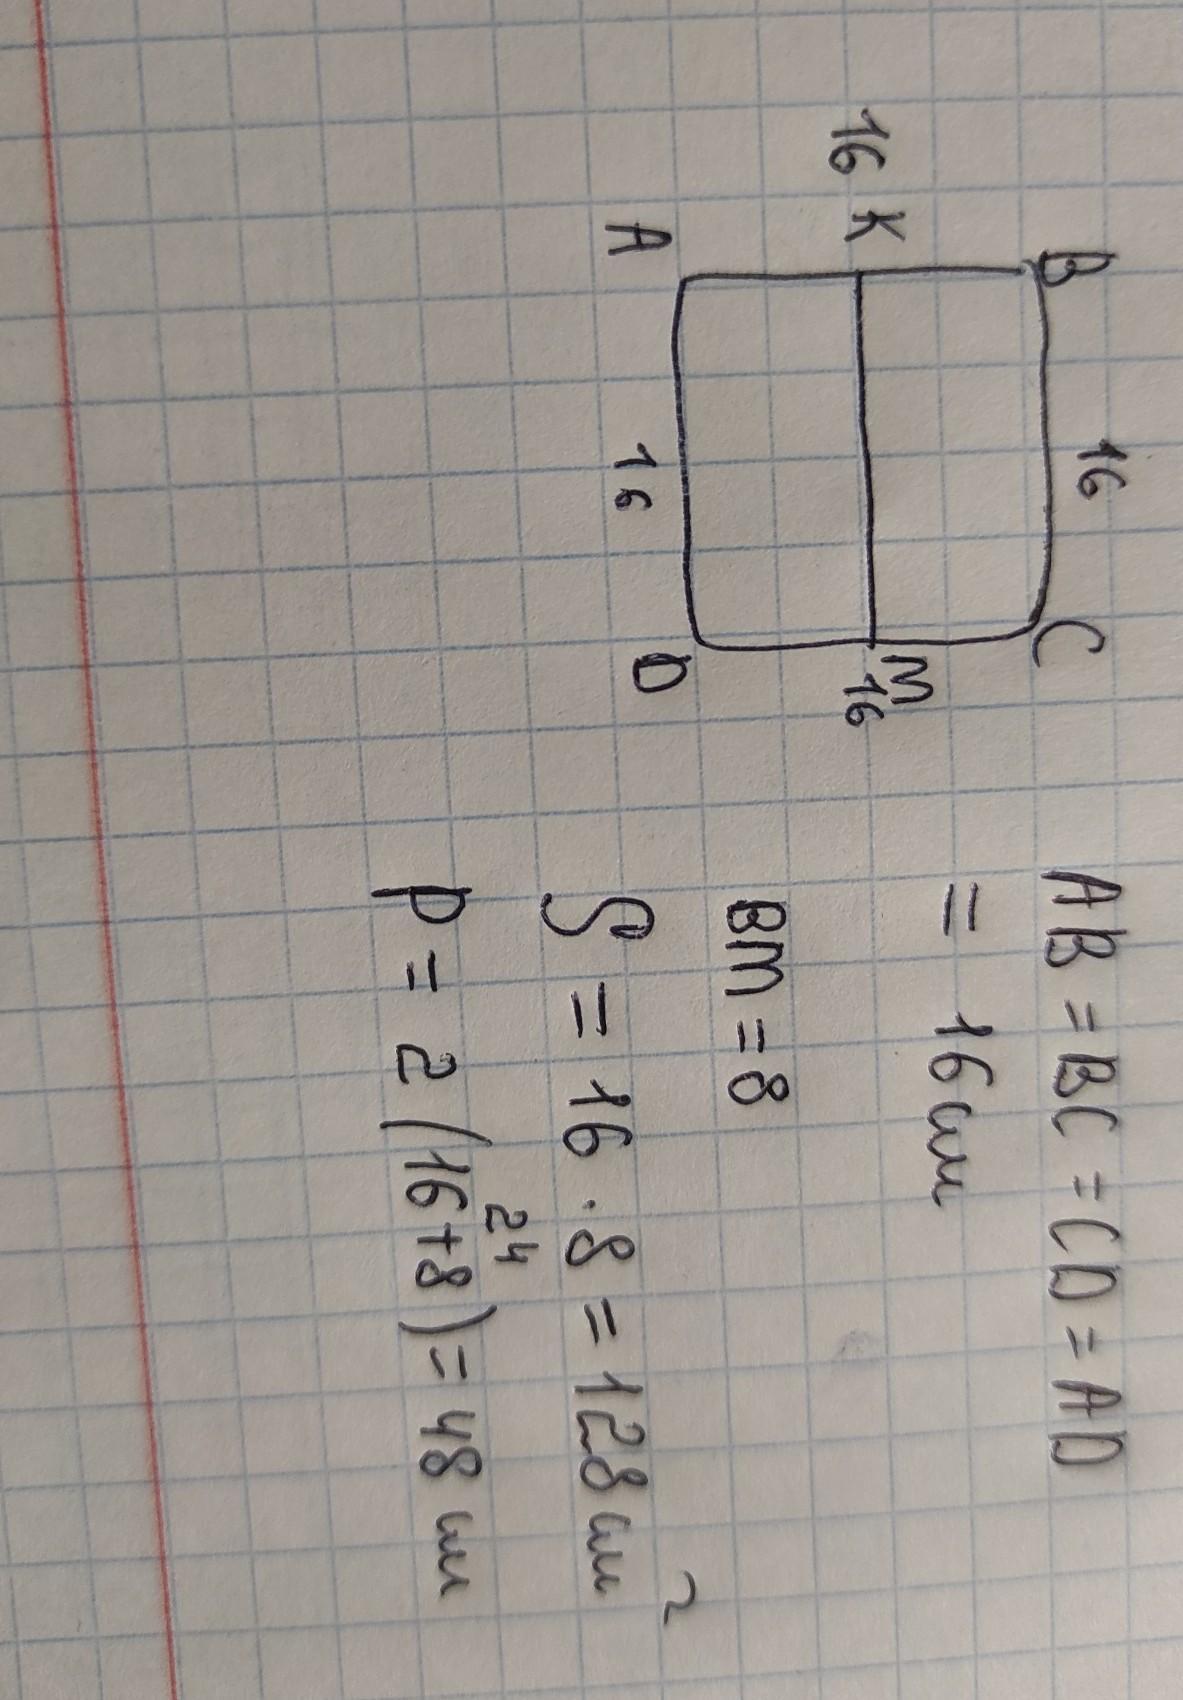 B 16 C
16 K M 16
A 16 D
AB = BC = CD = AD
= 16 см
BM = 8
S = 16 · 8 = 128 см²
24
P = 2 (16+8) = 48 см